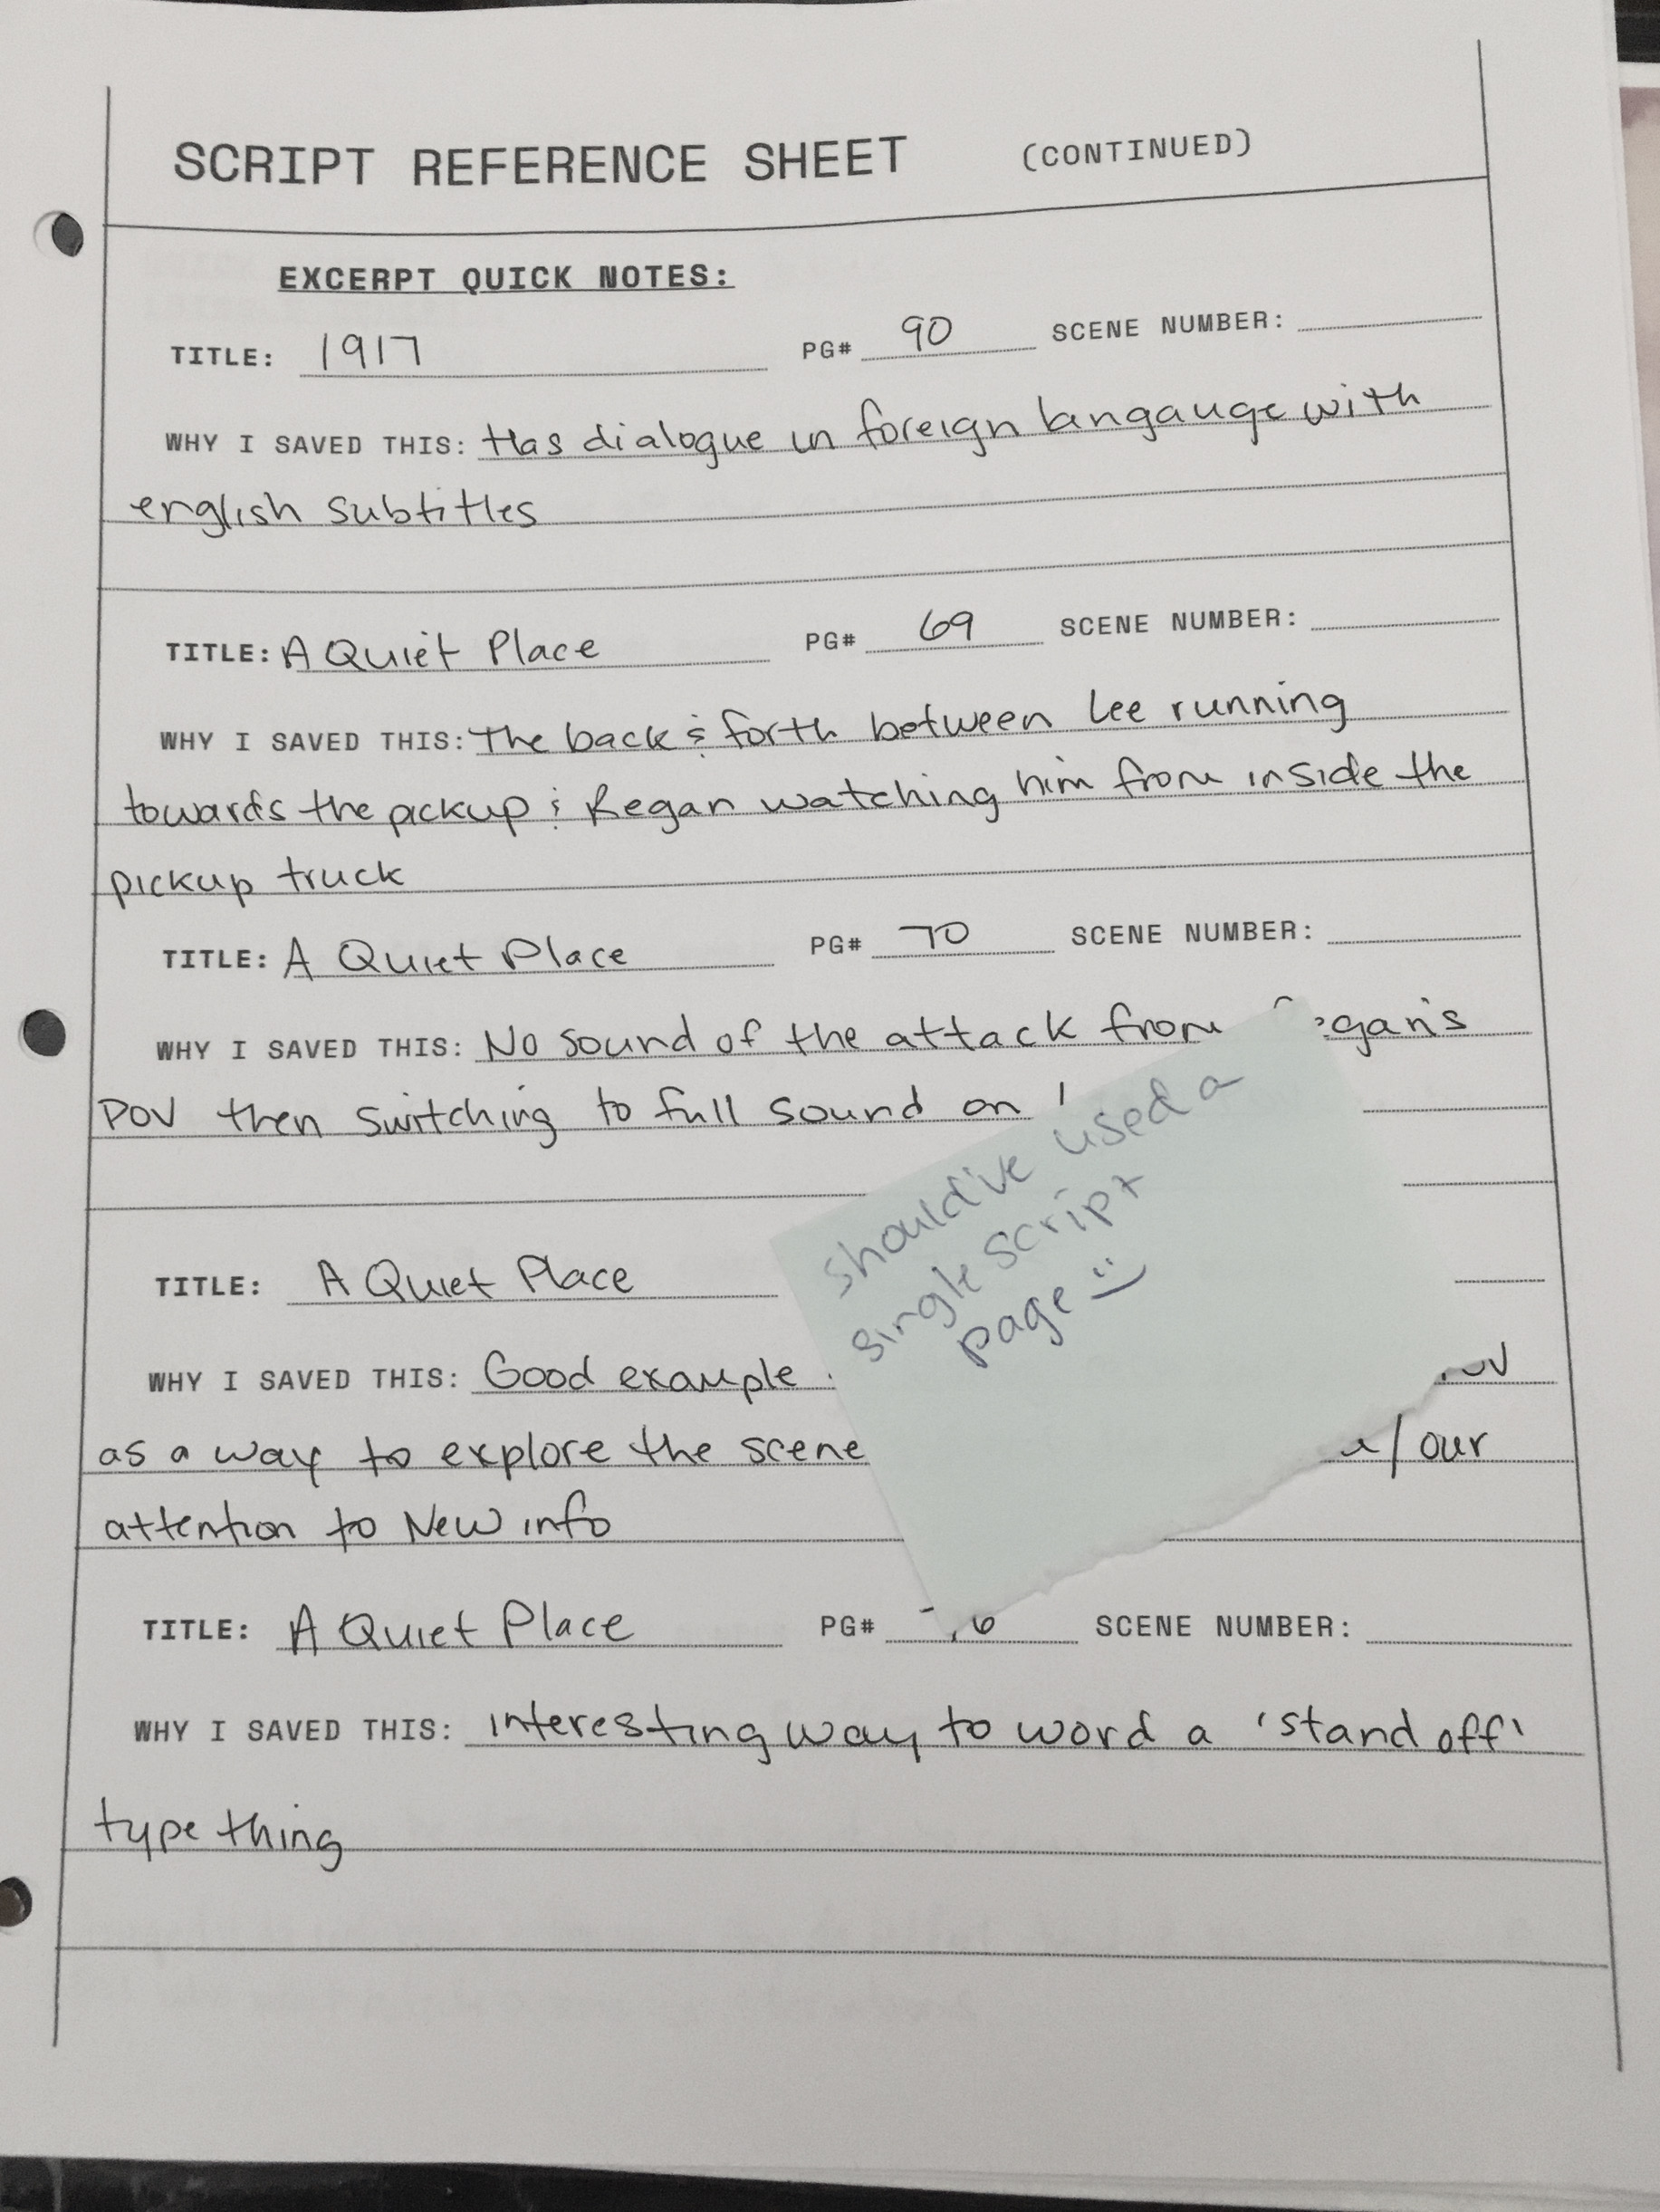 SCRIPT REFERENCE SHEET (CONTINUED)
EXCERPT QUICK NOTES:
TITLE: 1917 PG# 90 SCENE NUMBER:
WHY I SAVED THIS: Has dialogue in foreign langauge with
english subtitles
TITLE: A Quiet Place PG# 69 SCENE NUMBER:
WHY I SAVED THIS: The back & forth between Lee running
towards the pickup & Regan watching him from inside the
pickup truck
TITLE: A Quiet Place PG# 70 SCENE NUMBER:
WHY I SAVED THIS: No sound of the attack from
POV then switching to full sound on
should've used a
single script
page :)
TITLE: A Quiet Place
WHY I SAVED THIS: Good example
as a way to explore the scene / our
attention to New info
TITLE: A Quiet Place PG# SCENE NUMBER:
WHY I SAVED THIS: interesting way to word a 'stand off'
type thing